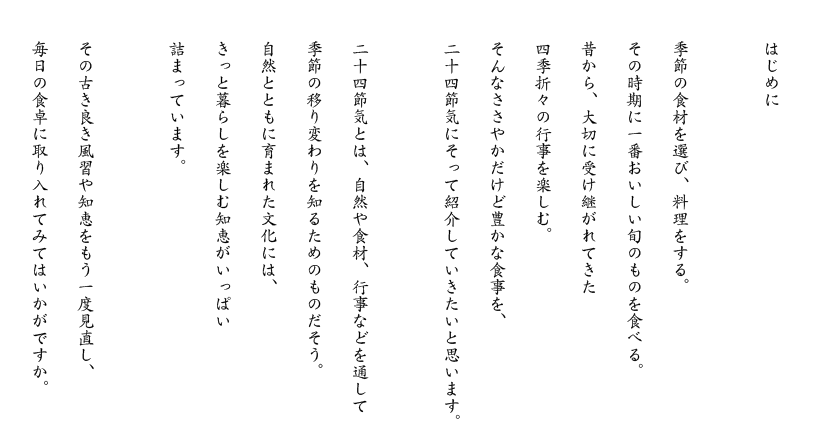 はじめに
季節の食材を選び、料理をする。
その時期に一番おいしい旬のものを食べる。
昔から、大切に受け継がれてきた
四季折々の行事を楽しむ。
そんなささやかだけど豊かな食事を、
二十四節気にそって紹介していきたいと思います。
二十四節気とは、自然や食材、行事などを通して
季節の移り変わりを知るためのものだそう。
自然とともに育まれた文化には、
きっと暮らしを楽しむ知恵がいっぱい
詰まっています。
その古き良き風習や知恵をもう一度見直し、
毎日の食卓に取り入れてみてはいかがですか。